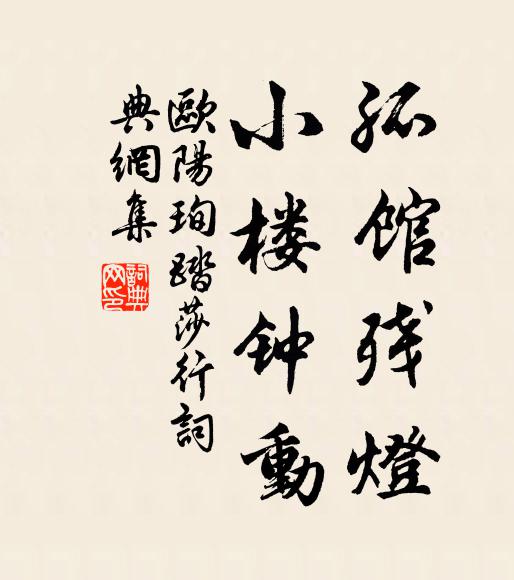 孤馆残燈
小楼钟動
歐陽珣踏莎行詞
典網集
詞典
网印